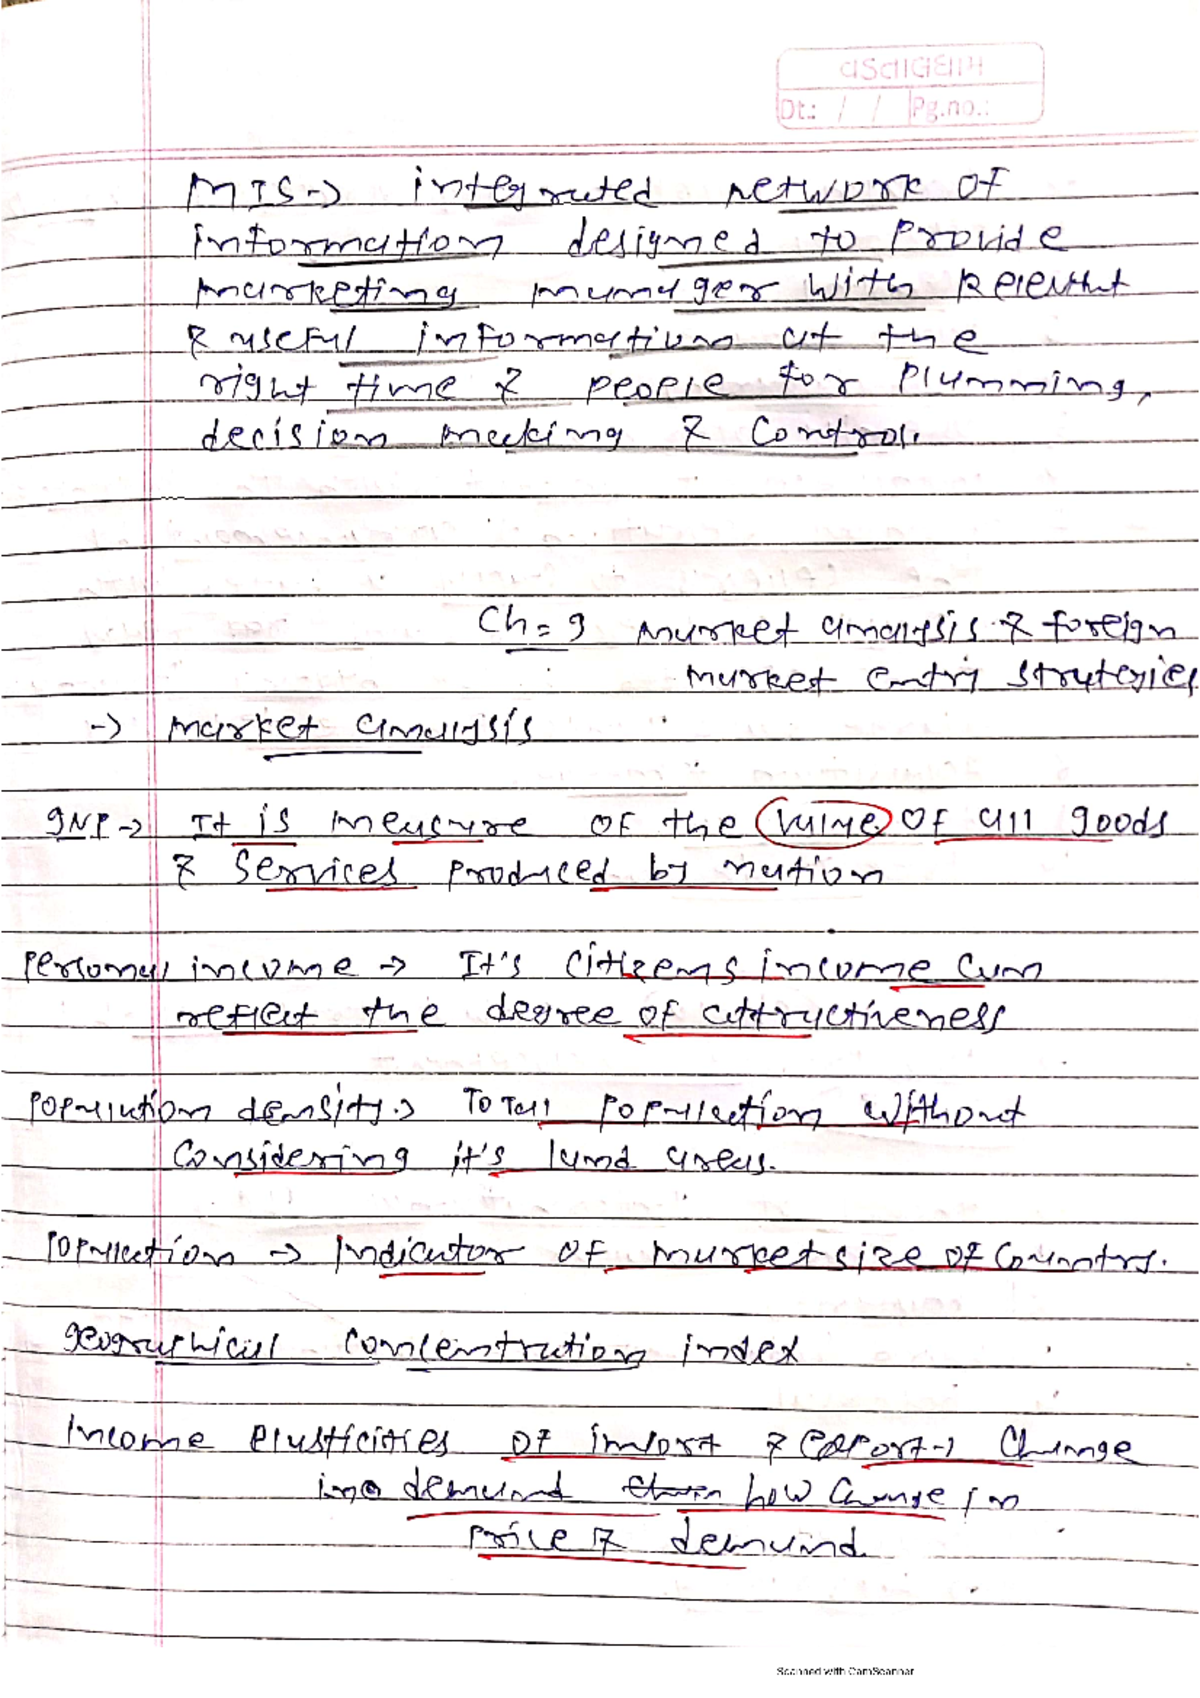 વસ્તાલધામ
Dt.: / / Pg.no.:
MIS → integrated network of
information designed to provide
marketing manager with Relevant
& useful information at the
right time & people for planning,
decision making & control.
Ch = 9 Market analysis & foreign
market entry strategies
→ market analysis
GNP → It is measure of the value of all goods
& services produced by nation
Personal income → It's citizens income can
reflect the degree of attractiveness
Population density → Total population without
considering it's land areas.
Population → Indicator of market size of country.
geographical concentration index
Income elasticities of import & export → Change
in demand how change in
price & demand.
Scanned with CamScanner